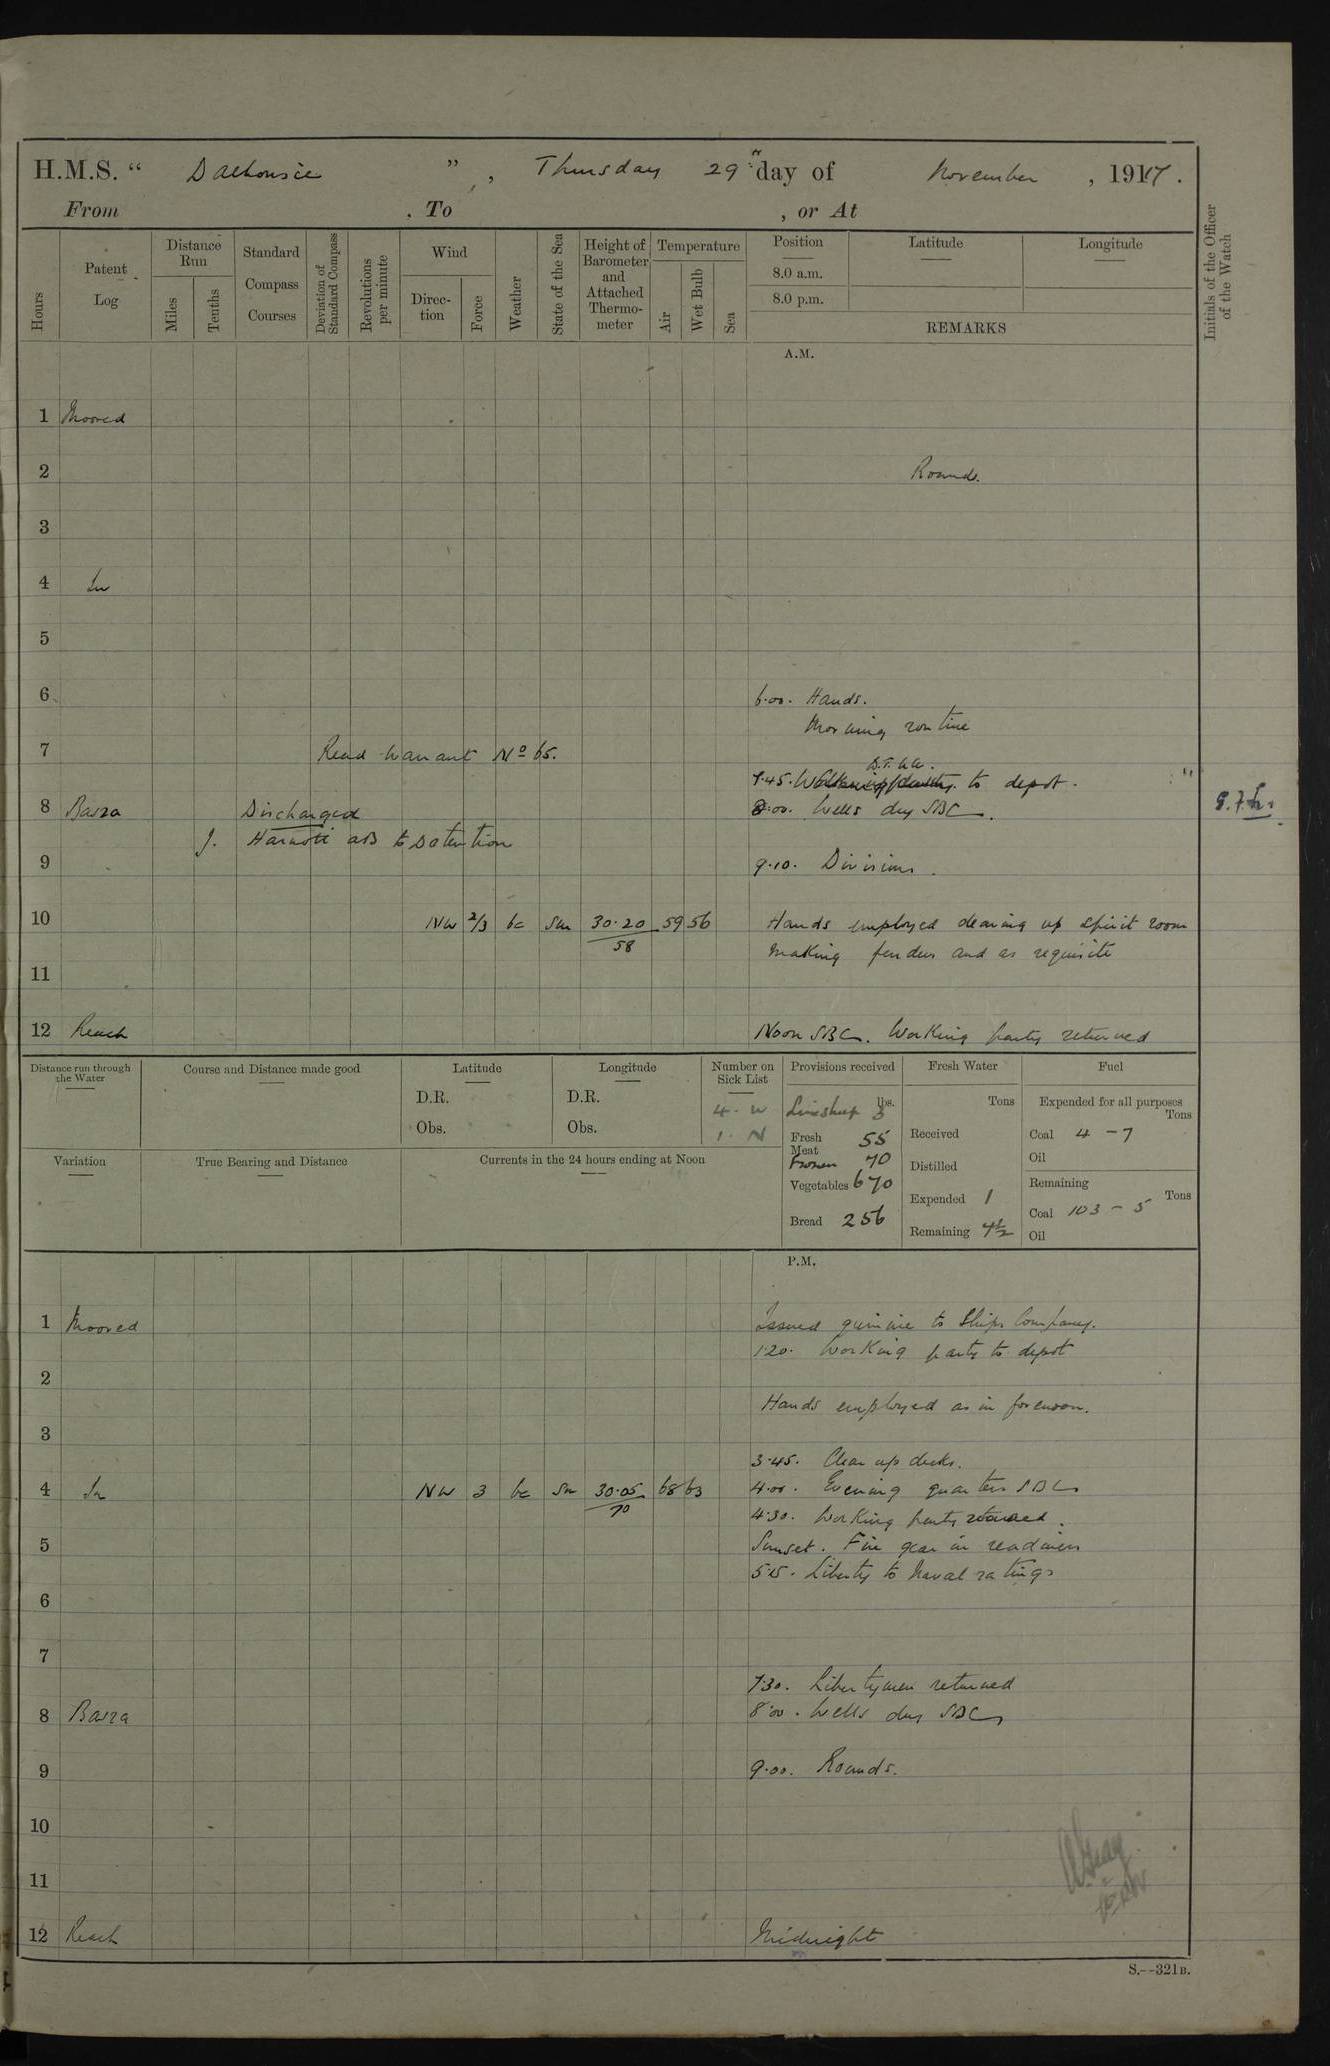 H.M.S. “ Dalhousie ” , Thursday 29th day of November , 1917 .
From , To , or At
Hours
Patent Log
Distance Run
Miles
Tenths
Standard Compass Courses
Deviation of Standard Compass
Revolutions per minute
Wind
Direction
Force
Weather
State of the Sea
Height of Barometer and Attached Thermometer
Temperature
Air
Wet Bulb
Sea
Position
8.0 a.m.
8.0 p.m.
Latitude
Longitude
REMARKS
Initials of the Officer of the Watch
A.M.
1 Moored
2 Rounds.
3
4 In
5
6 6.00. Hands.
Morning routine
7 Read Warrant No 65.
7.45. to depot.
8 Basra Discharged 8.00. Wells dry SBC.
J. AB to Detention
9 9.10. Divisions.
10 NW 2/3 bc Sm 30.20 59 56 Hands employed clearing up spirit room
58 Making fenders and as requisite
11
12 Reach Noon SBC. Working party returned
Distance run through the Water
Course and Distance made good
Latitude
D.R.
Obs.
Longitude
D.R.
Obs.
Number on Sick List
4. W
1. N
Provisions received
lbs.
Limejuice 3
Fresh Meat 55
Frozen 70
Vegetables 670
Bread 256
Fresh Water
Tons
Received
Distilled
Expended 1
Remaining 4½
Fuel
Expended for all purposes
Tons
Coal 4 - 7
Oil
Remaining
Tons
Coal 103 - 5
Oil
Variation
True Bearing and Distance
Currents in the 24 hours ending at Noon
P.M.
1 Moored Issued quinine to Ships Company.
1.20. Working party to depot
2
Hands employed as in forenoon.
3
3.45. Clear up decks.
4 In NW 3 bc Sm 30.05 68 63 4.00. Evening quarters SBC
70 4.30. Working party returned.
5 Sunset. Fire gear in readiness
5.15. Liberty to Naval ratings
6
7
7.30. Libertymen returned
8 Basra 8.00. Wells dry SBC
9 9.00. Rounds.
10
11
12 Reach Midnight
S.--321B.